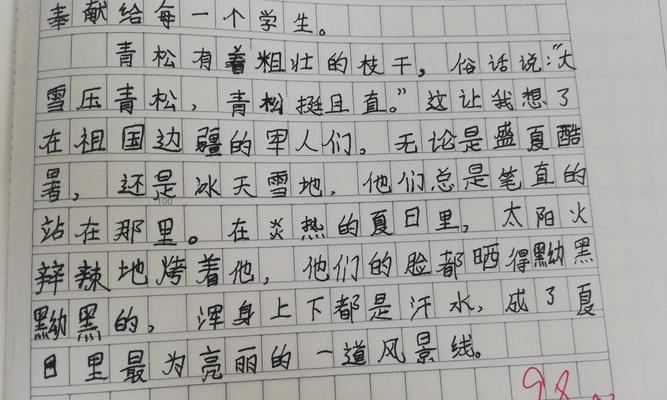 奉献给每一个学生。
青松有着粗壮的枝干，俗话说：“大
雪压青松，青松挺且直。”这让我想了
在祖国边疆的军人们。无论是盛夏酷
暑，还是冰天雪地，他们总是笔直的
站在那里。在炎热的夏日里，太阳火
辣辣地烤着他，他们的脸都晒得黝黑
黝黑的，浑身上下都是汗水，成了夏
日里最为亮丽的一道风景线。
98